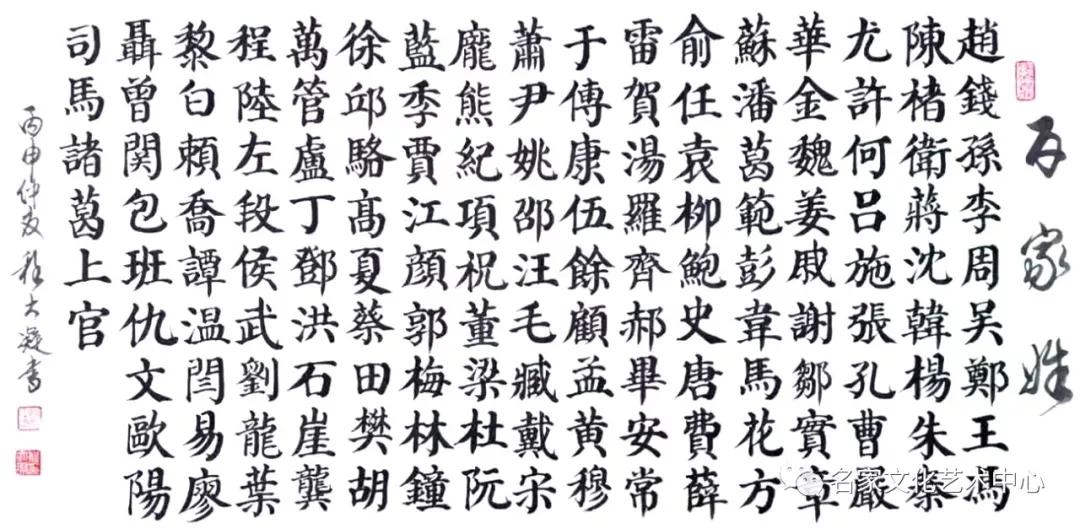 百家姓
趙錢孫李周吳鄭王馮
陳楮衛蔣沈韓楊朱秦
尤許何呂施張孔曹嚴
華金魏姜戚謝鄒實章
蘇潘葛範彭韋馬花方
俞任袁柳鮑史唐費薛
雷賀湯羅齊郝畢安常
于傅康伍餘顧孟黃穆
蕭尹姚邵汪毛臧戴宋
龐熊紀項祝董梁杜阮
藍季賈江顏郭梅林鐘
徐邱駱髙夏蔡田樊胡
萬管盧丁鄧洪石崖龔
程陸左段侯武劉龍葉
黎白賴喬譚温閆易廖
聶曾関包班仇文歐陽
司馬諸葛上官
丙申仲夏程大凝書
名家文化艺术中心